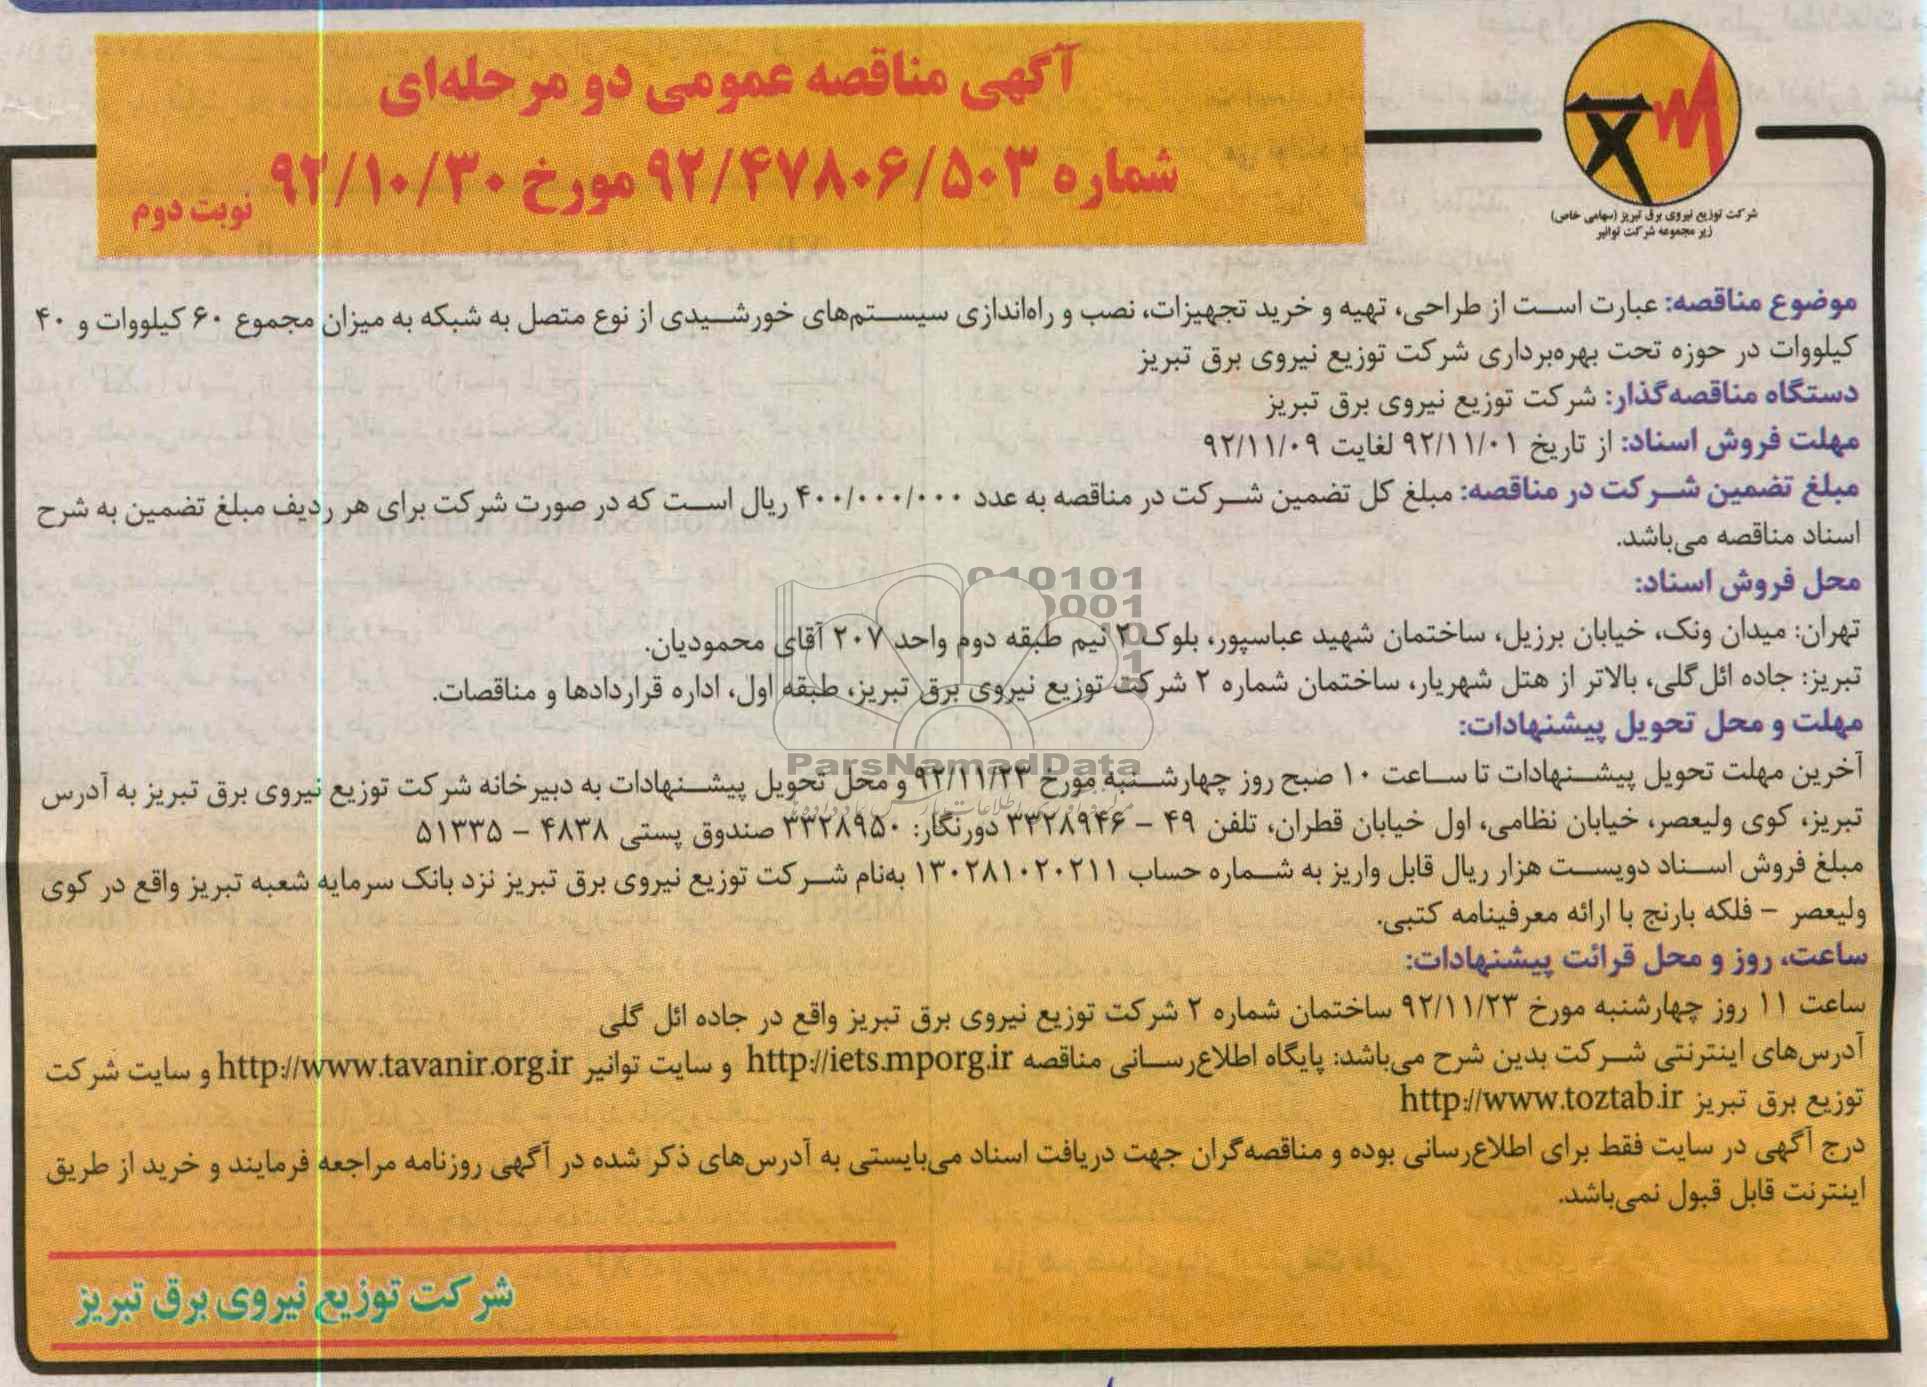 آگهی مناقصه عمومی دو مرحله‌ای
شماره ۹۲/۴۷۸۰۶/۵۰۳ مورخ ۹۲/۱۰/۳۰ نوبت دوم
شرکت توزیع نیروی برق تبریز (سهامی خاص)
زیر مجموعه شرکت توانیر
موضوع مناقصه: عبارت است از طراحی، تهیه و خرید تجهیزات، نصب و راه‌اندازی سیستم‌های خورشیدی از نوع متصل به شبکه به میزان مجموع ۶۰ کیلووات و ۴۰
کیلووات در حوزه تحت بهره‌برداری شرکت توزیع نیروی برق تبریز
دستگاه مناقصه‌گذار: شرکت توزیع نیروی برق تبریز
مهلت فروش اسناد: از تاریخ ۹۲/۱۱/۰۱ لغایت ۹۲/۱۱/۰۹
مبلغ تضمین شرکت در مناقصه: مبلغ کل تضمین شرکت در مناقصه به عدد ۴۰۰/۰۰۰/۰۰۰ ریال است که در صورت شرکت برای هر ردیف مبلغ تضمین به شرح
اسناد مناقصه می‌باشد.
محل فروش اسناد:
تهران: میدان ونک، خیابان برزیل، ساختمان شهید عباسپور، بلوک ۲ نیم طبقه دوم واحد ۲۰۷ آقای محمودیان.
تبریز: جاده ائل‌گلی، بالاتر از هتل شهریار، ساختمان شماره ۲ شرکت توزیع نیروی برق تبریز، طبقه اول، اداره قراردادها و مناقصات.
مهلت و محل تحویل پیشنهادات:
آخرین مهلت تحویل پیشنهادات تا ساعت ۱۰ صبح روز چهارشنبه مورخ ۹۲/۱۱/۲۳ و محل تحویل پیشنهادات به دبیرخانه شرکت توزیع نیروی برق تبریز به آدرس
تبریز، کوی ولیعصر، خیابان نظامی، اول خیابان قطران، تلفن ۴۹ – ۳۳۲۸۹۴۶ دورنگار: ۳۳۲۸۹۵۰ صندوق پستی ۴۸۳۸ – ۵۱۳۳۵
مبلغ فروش اسناد دویست هزار ریال قابل واریز به شماره حساب ۱۳۰۲۸۱۰۲۰۲۱۱ به‌نام شرکت توزیع نیروی برق تبریز نزد بانک سرمایه شعبه تبریز واقع در کوی
ولیعصر – فلکه بارنج با ارائه معرفینامه کتبی.
ساعت، روز و محل قرائت پیشنهادات:
ساعت ۱۱ روز چهارشنبه مورخ ۹۲/۱۱/۲۳ ساختمان شماره ۲ شرکت توزیع نیروی برق تبریز واقع در جاده ائل گلی
آدرس‌های اینترنتی شرکت بدین شرح می‌باشد: پایگاه اطلاع‌رسانی مناقصه http://iets.mporg.ir و سایت توانیر http://www.tavanir.org.ir و سایت شرکت
توزیع برق تبریز http://www.toztab.ir
درج آگهی در سایت فقط برای اطلاع‌رسانی بوده و مناقصه‌گران جهت دریافت اسناد می‌بایستی به آدرس‌های ذکر شده در آگهی روزنامه مراجعه فرمایند و خرید از طریق
اینترنت قابل قبول نمی‌باشد.
شرکت توزیع نیروی برق تبریز
ParsNamadData